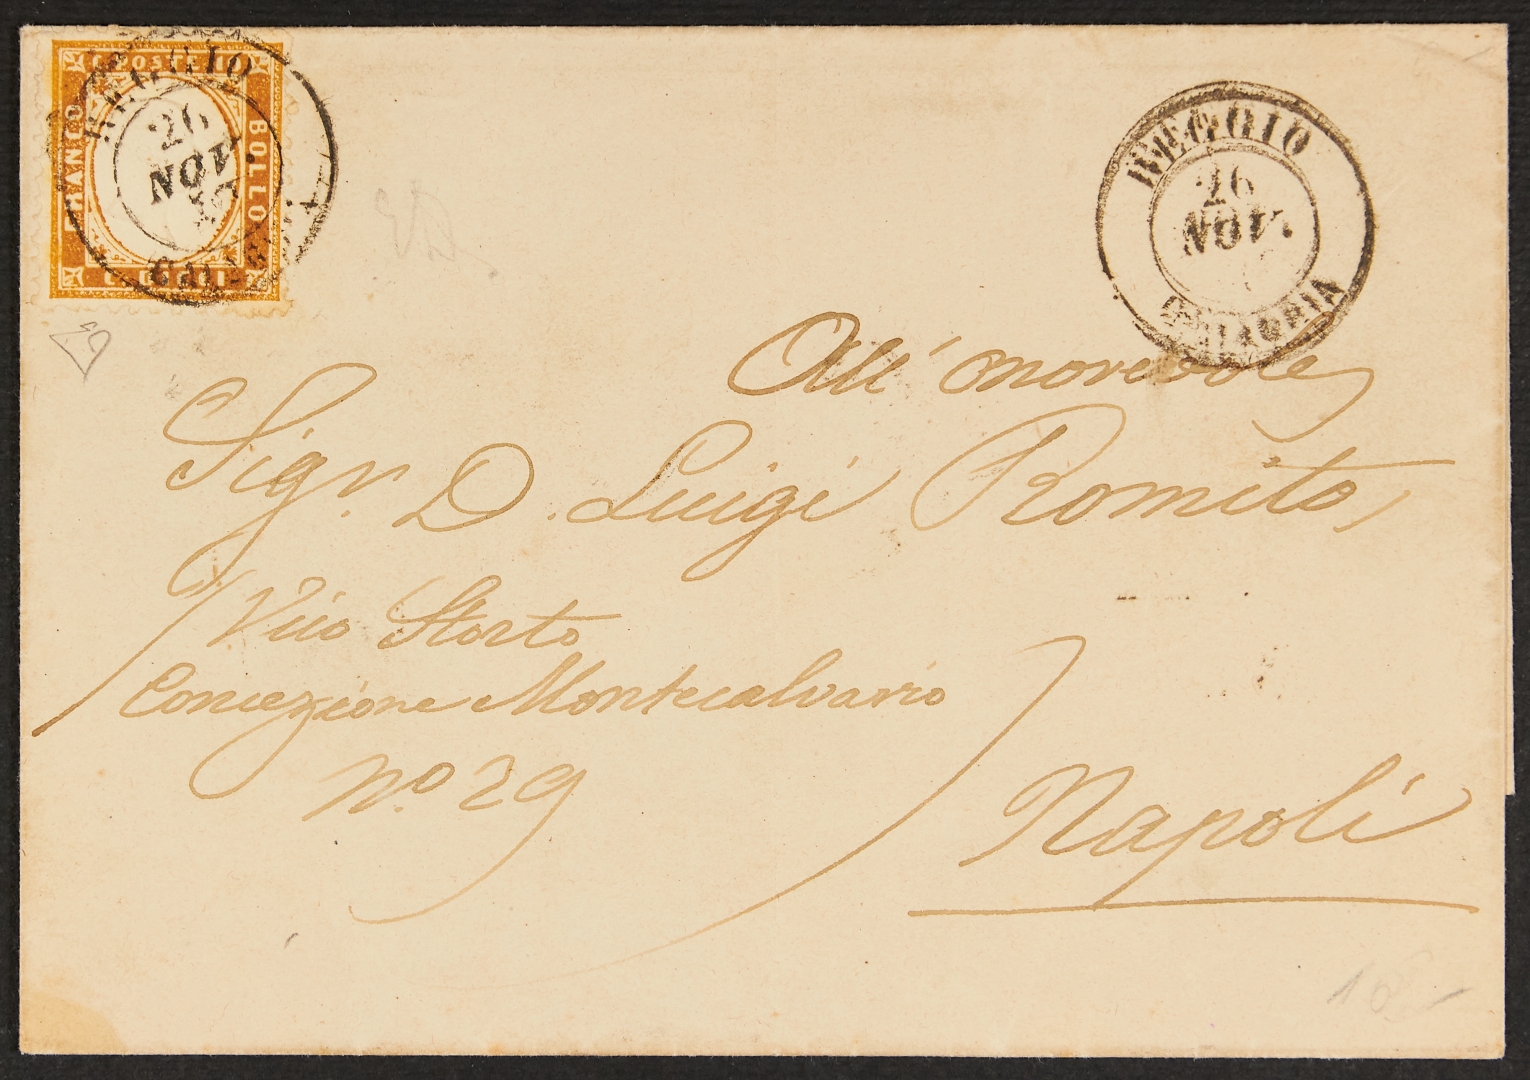 C. POSTE 10
FRANCO
BOLLO
REGGIO
26
NOV.
REGGIO
26
NOV.
CALABRIA
All' onorevole
Sigr. D. Luigi Romito
Vico Storto
Concezzione Montecalvario
No. 29
Napoli